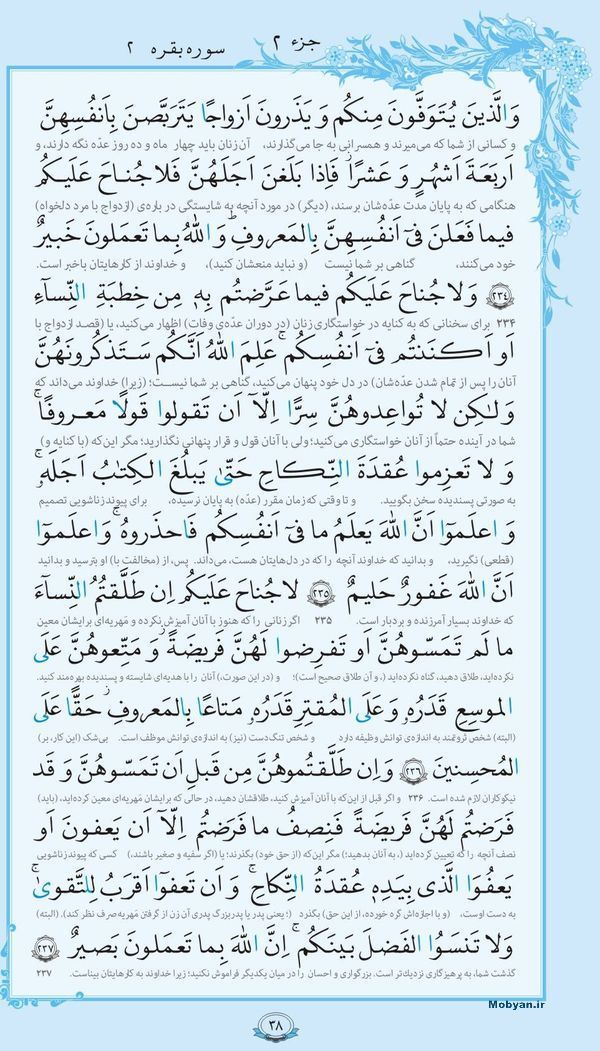 جزء ۲
سوره بقره ۲
وَ الَّذینَ یُتَوَفَّونَ مِنکُم وَ یَذَرونَ اَزواجًا یَتَرَبَّصنَ بِاَنفُسِهِنَّ
و کسانی از شما که می‌میرند و همسرانی به جا می‌گذارند، آن زنان باید چهار ماه و ده روز عده نگه دارند، و
اَربَعَةَ اَشهُرٍ وَ عَشرًا ۖ فَاِذا بَلَغنَ اَجَلَهُنَّ فَلا جُناحَ عَلَیکُم
هنگامی که به پایان مدت عدّه‌شان برسند، (دیگر) در مورد آنچه به شایستگی در باره‌ی (ازدواج با مرد دلخواه)
فیما فَعَلنَ فی اَنفُسِهِنَّ بِالمَعروفِ ۗ وَ اللهُ بِما تَعمَلونَ خَبیرٌ
خود می‌کنند، گناهی بر شما نیست (و نباید منعشان کنید)، و خداوند از کارهایتان باخبر است.
﴿۲۳۴﴾ وَ لا جُناحَ عَلَیکُم فیما عَرَّضتُم بِه مِن خِطبَةِ النِّساءِ
۲۳۴ برای سخنانی که به کنایه در خواستگاری زنان (در دوران عدّه‌ی وفات) اظهار می‌کنید، یا (قصد ازدواج با
اَو اَکنَنتُم فی اَنفُسِکُم ۚ عَلِمَ اللهُ اَنَّکُم سَتَذکُرونَهُنَّ
آنان را پس از تمام شدن عدّه‌شان) در دل خود پنهان می‌کنید، گناهی بر شما نیست؛ (زیرا) خداوند می‌داند که
وَ لٰکِن لا تُواعِدوهُنَّ سِرًّا اِلّا اَن تَقولوا قَولًا مَعروفًا ۚ
شما در آینده حتماً از آنان خواستگاری می‌کنید؛ ولی با آنان قول و قرار پنهانی نگذارید؛ مگر این‌که (با کنایه و)
وَ لا تَعزِموا عُقدَةَ النِّکاحِ حَتّیٰ یَبلُغَ الکِتٰبُ اَجَلَه ۚ
به صورتی پسندیده سخن بگویید. و تا وقتی که زمان مقرر (عدّه) به پایان نرسیده، برای پیوند زناشویی تصمیم
وَ اعلَموا اَنَّ اللهَ یَعلَمُ ما فی اَنفُسِکُم فَاحذَروهُ ۚ وَ اعلَموا
(قطعی) نگیرید، و بدانید که خداوند آنچه را که در دل‌هایتان هست، می‌داند. پس، از (مخالفت با) او بترسید و بدانید
اَنَّ اللهَ غَفورٌ حَلیمٌ ﴿۲۳۵﴾ لا جُناحَ عَلَیکُم اِن طَلَّقتُمُ النِّساءَ
که خداوند بسیار آمرزنده و بردبار است. ۲۳۵ اگر زنانی را که هنوز با آنان آمیزش نکرده و مَهریه‌ای برایشان معین
ما لَم تَمَسّوهُنَّ اَو تَفرِضوا لَهُنَّ فَریضَةً ۚ وَ مَتِّعوهُنَّ عَلَی
نکرده‌اید، طلاق دهید، گناه نکرده‌اید (، و آن طلاق صحیح است)؛ و (در این صورت،) آنان را با هدیه‌ای شایسته و پسندیده بهره‌مند کنید.
الموسِعِ قَدَرُه و وَ عَلَی المُقتِرِ قَدَرُه و مَتاعًا بِالمَعروفِ ۖ حَقًّا عَلَی
(البته) شخص ثروتمند به اندازه‌ی توانش وظیفه دارد و شخص تنگ‌دست (نیز) به اندازه‌ی توانش موظف است. بی‌شک (این کار، بر)
المُحسِنینَ ﴿۲۳۶﴾ وَ اِن طَلَّقتُموهُنَّ مِن قَبلِ اَن تَمَسّوهُنَّ وَ قَد
نیکوکاران لازم شده است. ۲۳۶ و اگر قبل از این‌که با آنان آمیزش کنید، طلاقشان دهید، در حالی که برایشان مَهریه‌ای معین کرده‌اید، (باید)
فَرَضتُم لَهُنَّ فَریضَةً فَنِصفُ ما فَرَضتُم اِلّا اَن یَعفونَ اَو
نصف آنچه را که تعیین کرده‌اید (، به آنان بدهید)؛ مگر این‌که (از حق خود) بگذرند؛ یا (اگر سفیه و صغیر باشند،) کسی که پیوند زناشویی
یَعفُوَا الَّذی بِیَدِه عُقدَةُ النِّکاحِ ۚ وَ اَن تَعفوا اَقرَبُ لِلتَّقویٰ ۚ
به دست اوست، (و با اجازه‌اش گره خورده، از این حق) بگذرد (؛ یعنی پدر یا پدربزرگ پدری آن زن از گرفتن مَهریه صرف نظر کند). (البته)
وَ لا تَنسَوُا الفَضلَ بَینَکُم ۚ اِنَّ اللهَ بِما تَعمَلونَ بَصیرٌ ﴿۲۳۷﴾
گذشت شما، به پرهیزگاری نزدیک‌تر است. بزرگواری و احسان را در میان یکدیگر فراموش نکنید؛ زیرا خداوند به کارهایتان بیناست. ۲۳۷
Mobyan.ir
۳۸